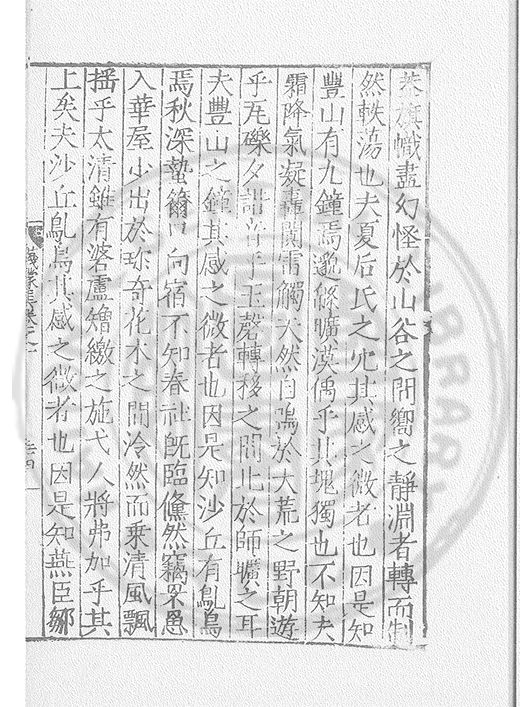 旗幟盡幻怪於山谷之間嚮之靜淵者轉而制
然軼蕩也夫夏后氏之 其感之微者也因是知
豐山有九鐘焉邈緜曠漠偶乎 塊獨也不知夫
霜降氣凝轟 雷觸天然自鳴於大荒之野朝遊
乎瓦礫夕諧音乎玉磬轉移之間比於師曠之耳
夫豐山之鐘其感之微者也因是知沙丘有鳦鳥
焉秋深蟄 口向宿不知春社旣臨儵然竊罘罳
入華屋少出於珍奇花木之間泠然而乘清風飄
搖乎太清雖有 盧矰繳之施弋人將弗加乎其
上矣夫沙丘鳦鳥其感之微者也因是知燕臣鄒
LIBRARY